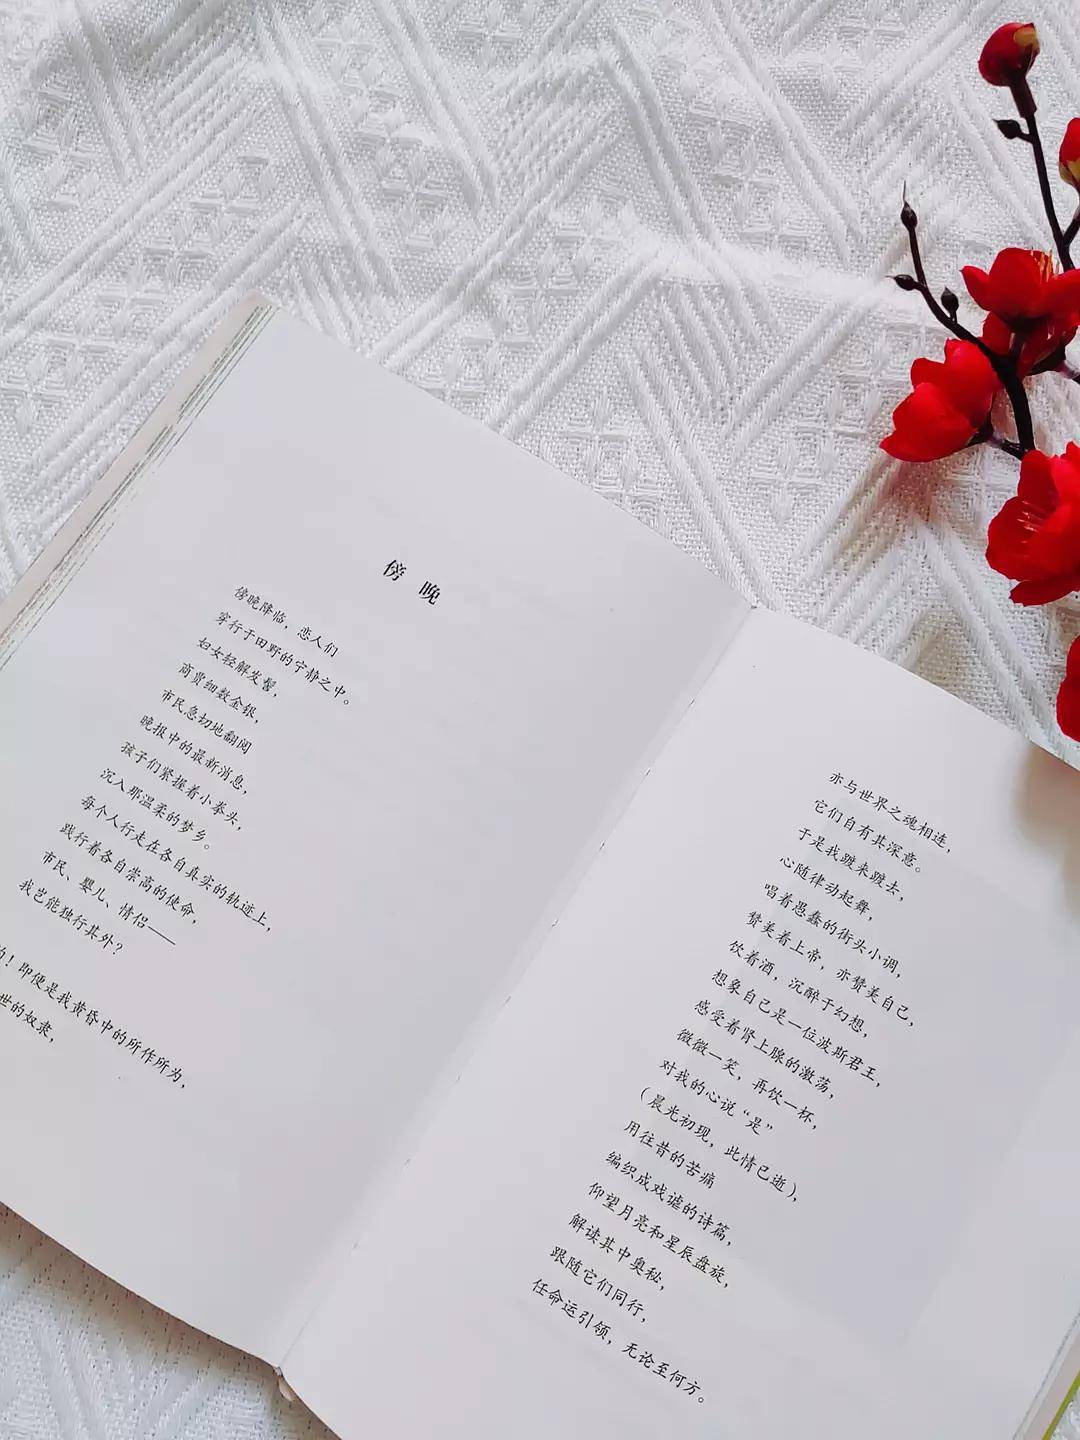 傍晚
傍晚降临，恋人们
穿行于田野的宁静之中。
妇女轻解发髻，
商贾细数金银，
市民急切地翻阅
晚报中的最新消息，
孩子们紧握着小拳头，
沉入那温柔的梦乡。
每个人行走在各自真实的轨迹上，
践行着各自崇高的使命，
市民、婴儿、情侣——
我岂能独行其外？
！即便是我黄昏中的所作所为，
世的奴隶，
亦与世界之魂相连，
它们自有其深意。
于是我踱来踱去，
心随律动起舞，
唱着愚蠢的街头小调，
赞美着上帝，亦赞美自己，
饮着酒，沉醉于幻想，
想象自己是一位波斯君王，
感受着肾上腺的激荡，
微微一笑，再饮一杯，
对我的心说“是”
（晨光初现，此情已逝），
用往昔的苦痛
编织成戏谑的诗篇，
仰望月亮和星辰盘旋，
解读其中奥秘，
跟随它们同行，
任命运引领，无论至何方。